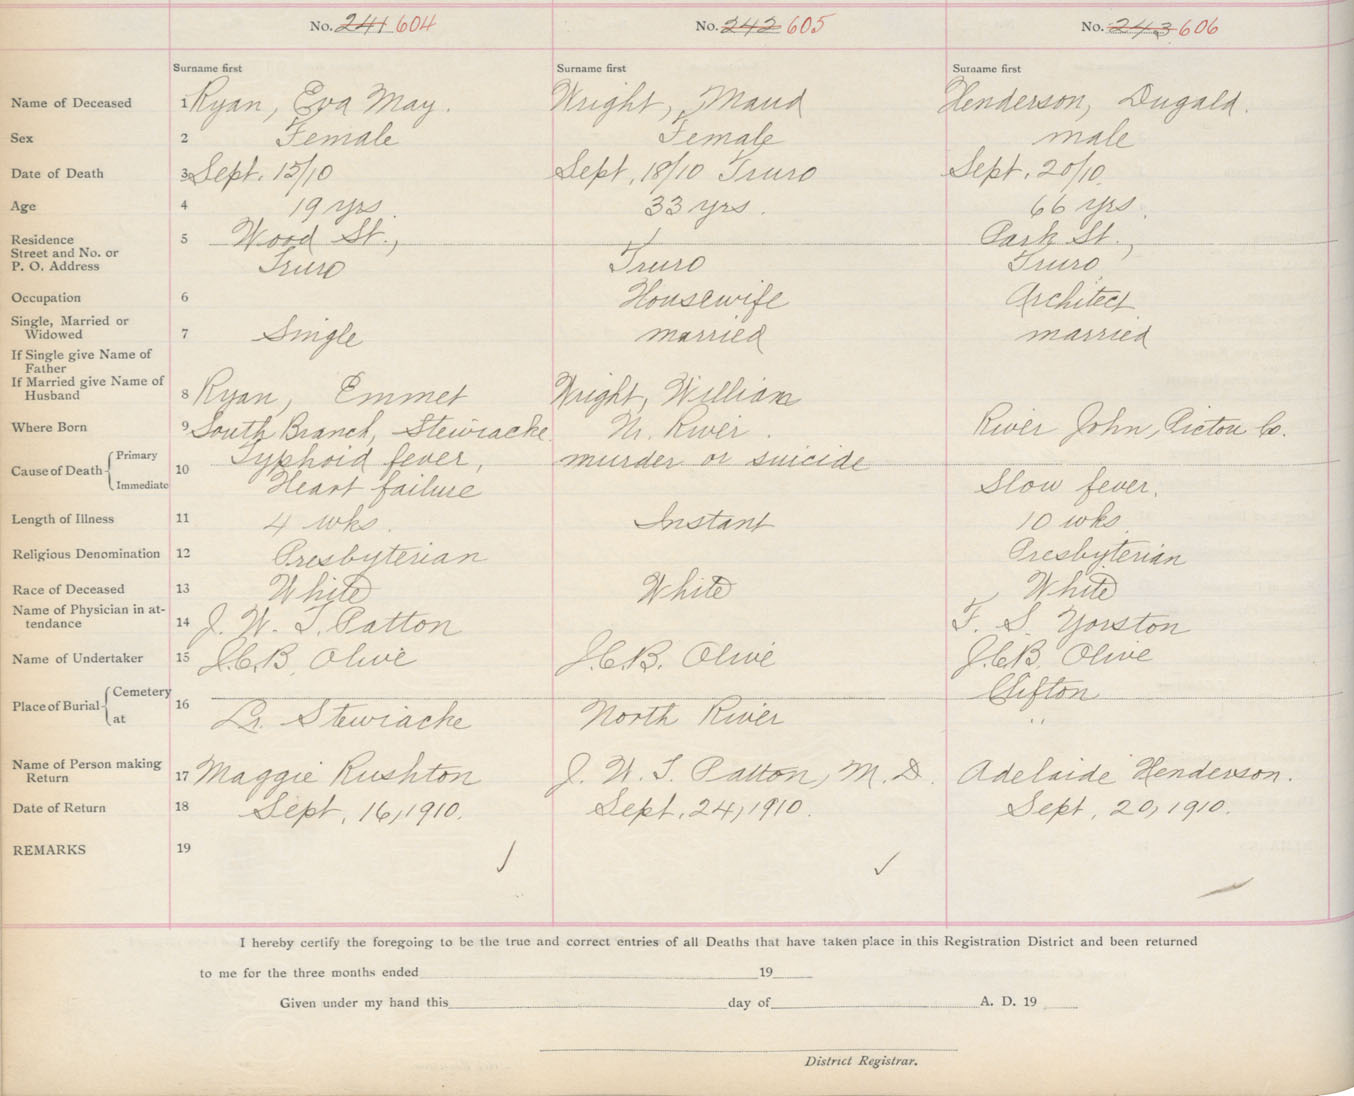 No. 241 604 No. 242 605 No. 243 606
Surname first Surname first Surname first
Name of Deceased 1 Ryan, Eva May. Wright, Maud Henderson, Dugald.
Sex 2 Female Female male
Date of Death 3 Sept. 15/10 Sept, 18/10 Truro Sept. 20/10.
Age 4 19 yrs. 33 yrs. 66 yrs.
Residence 5 Wood St., Park St.,
Street and No. or
P. O. Address Truro Truro Truro
Occupation 6 Housewife Architect
Single, Married or
Widowed 7 Single married married
If Single give Name of
Father
If Married give Name of
Husband 8 Ryan, Emmet Wright, William
Where Born 9 South Branch, Stewiacke. N. River. River John, Pictou Co.
Cause of Death Primary 10 Typhoid fever, murder or suicide
Immediate Heart failure Slow fever.
Length of Illness 11 4 wks. Instant 10 wks.
Religious Denomination 12 Presbyterian Presbyterian
Race of Deceased 13 White White White
Name of Physician in at-
tendance 14 J. W. T. Patton F. S. Yorston
Name of Undertaker 15 J.C.B. Olive J.C.B. Olive J.C.B. Olive
Place of Burial Cemetery 16 Clifton
at Lr. Stewiacke North River "
Name of Person making
Return 17 Maggie Rushton J. W. T. Patton, M. D. Adelaide Henderson.
Date of Return 18 Sept. 16, 1910. Sept. 24, 1910. Sept. 20, 1910.
REMARKS 19
I hereby certify the foregoing to be the true and correct entries of all Deaths that have taken place in this Registration District and been returned
to me for the three months ended 19
Given under my hand this day of A. D. 19
District Registrar.